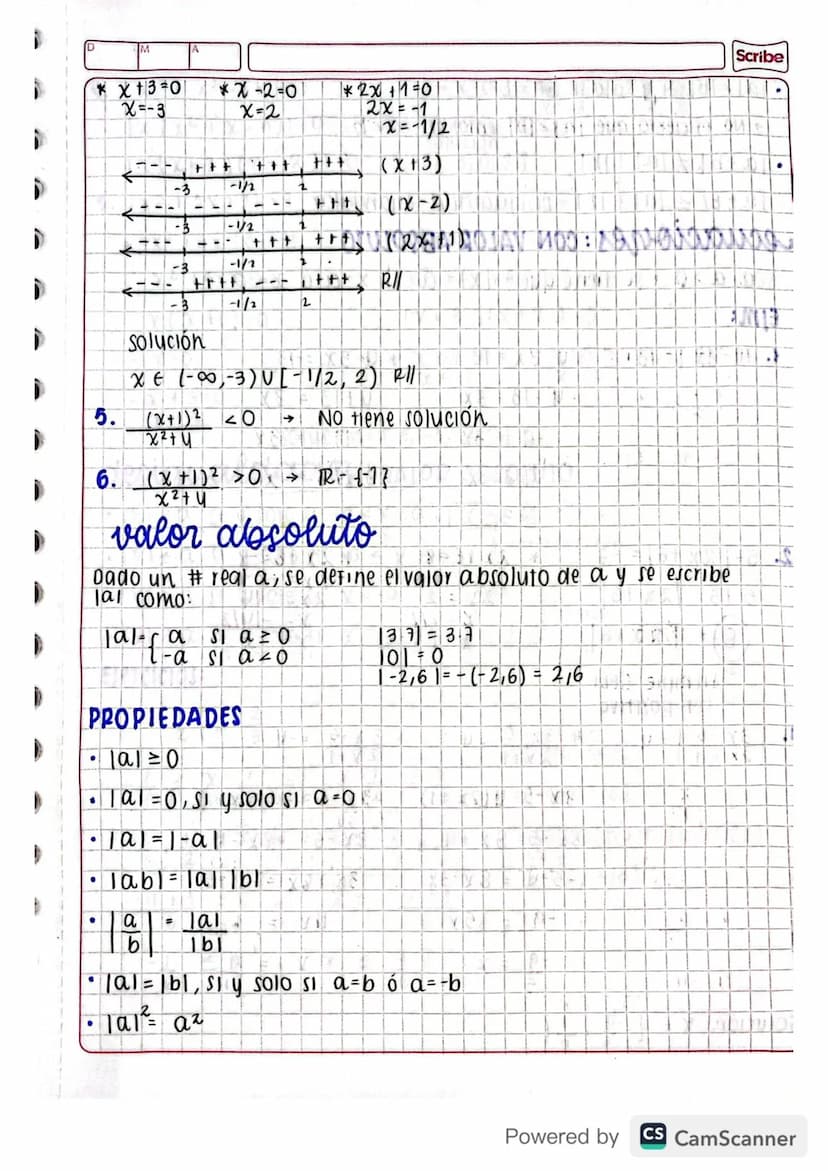 D M A
Scribe
* x+3=0 * x-2=0 * 2x+1=0
x=-3 x=2 2x=-1
x=-1/2
--- +++ +++ +++ (x+3)
-3 -1/2 2
--- --- --- +++ (x-2)
-3 -1/2 2
--- --- +++ +++ (2x+1)
-3 -1/2 2
--- ++++ --- +++ R//
-3 -1/2 2
Solución
x ∈ (-∞,-3) ∪ [-1/2, 2) R//
5. (x+1)²/x²+4 <0 → No tiene solución
6. (x+1)²/x²+4 >0 → ℝ-{-1}
valor absoluto
Dado un # real a, se define el valor absoluto de a y se escribe
|a| como:
|a|={ a si a≥0 |3.7| = 3.7
-a si a<0 |0| = 0
|-2,6|=-(-2,6) = 2,6
PROPIEDADES
• |a| ≥ 0
• |a| = 0, si y solo si a=0
• |a| = |-a|
• |ab| = |a| |b|
• |a/b| = |a|/|b|
• |a| = |b|, si y solo si a=b ó a=-b
• |a|² = a²
Powered by CS CamScanner